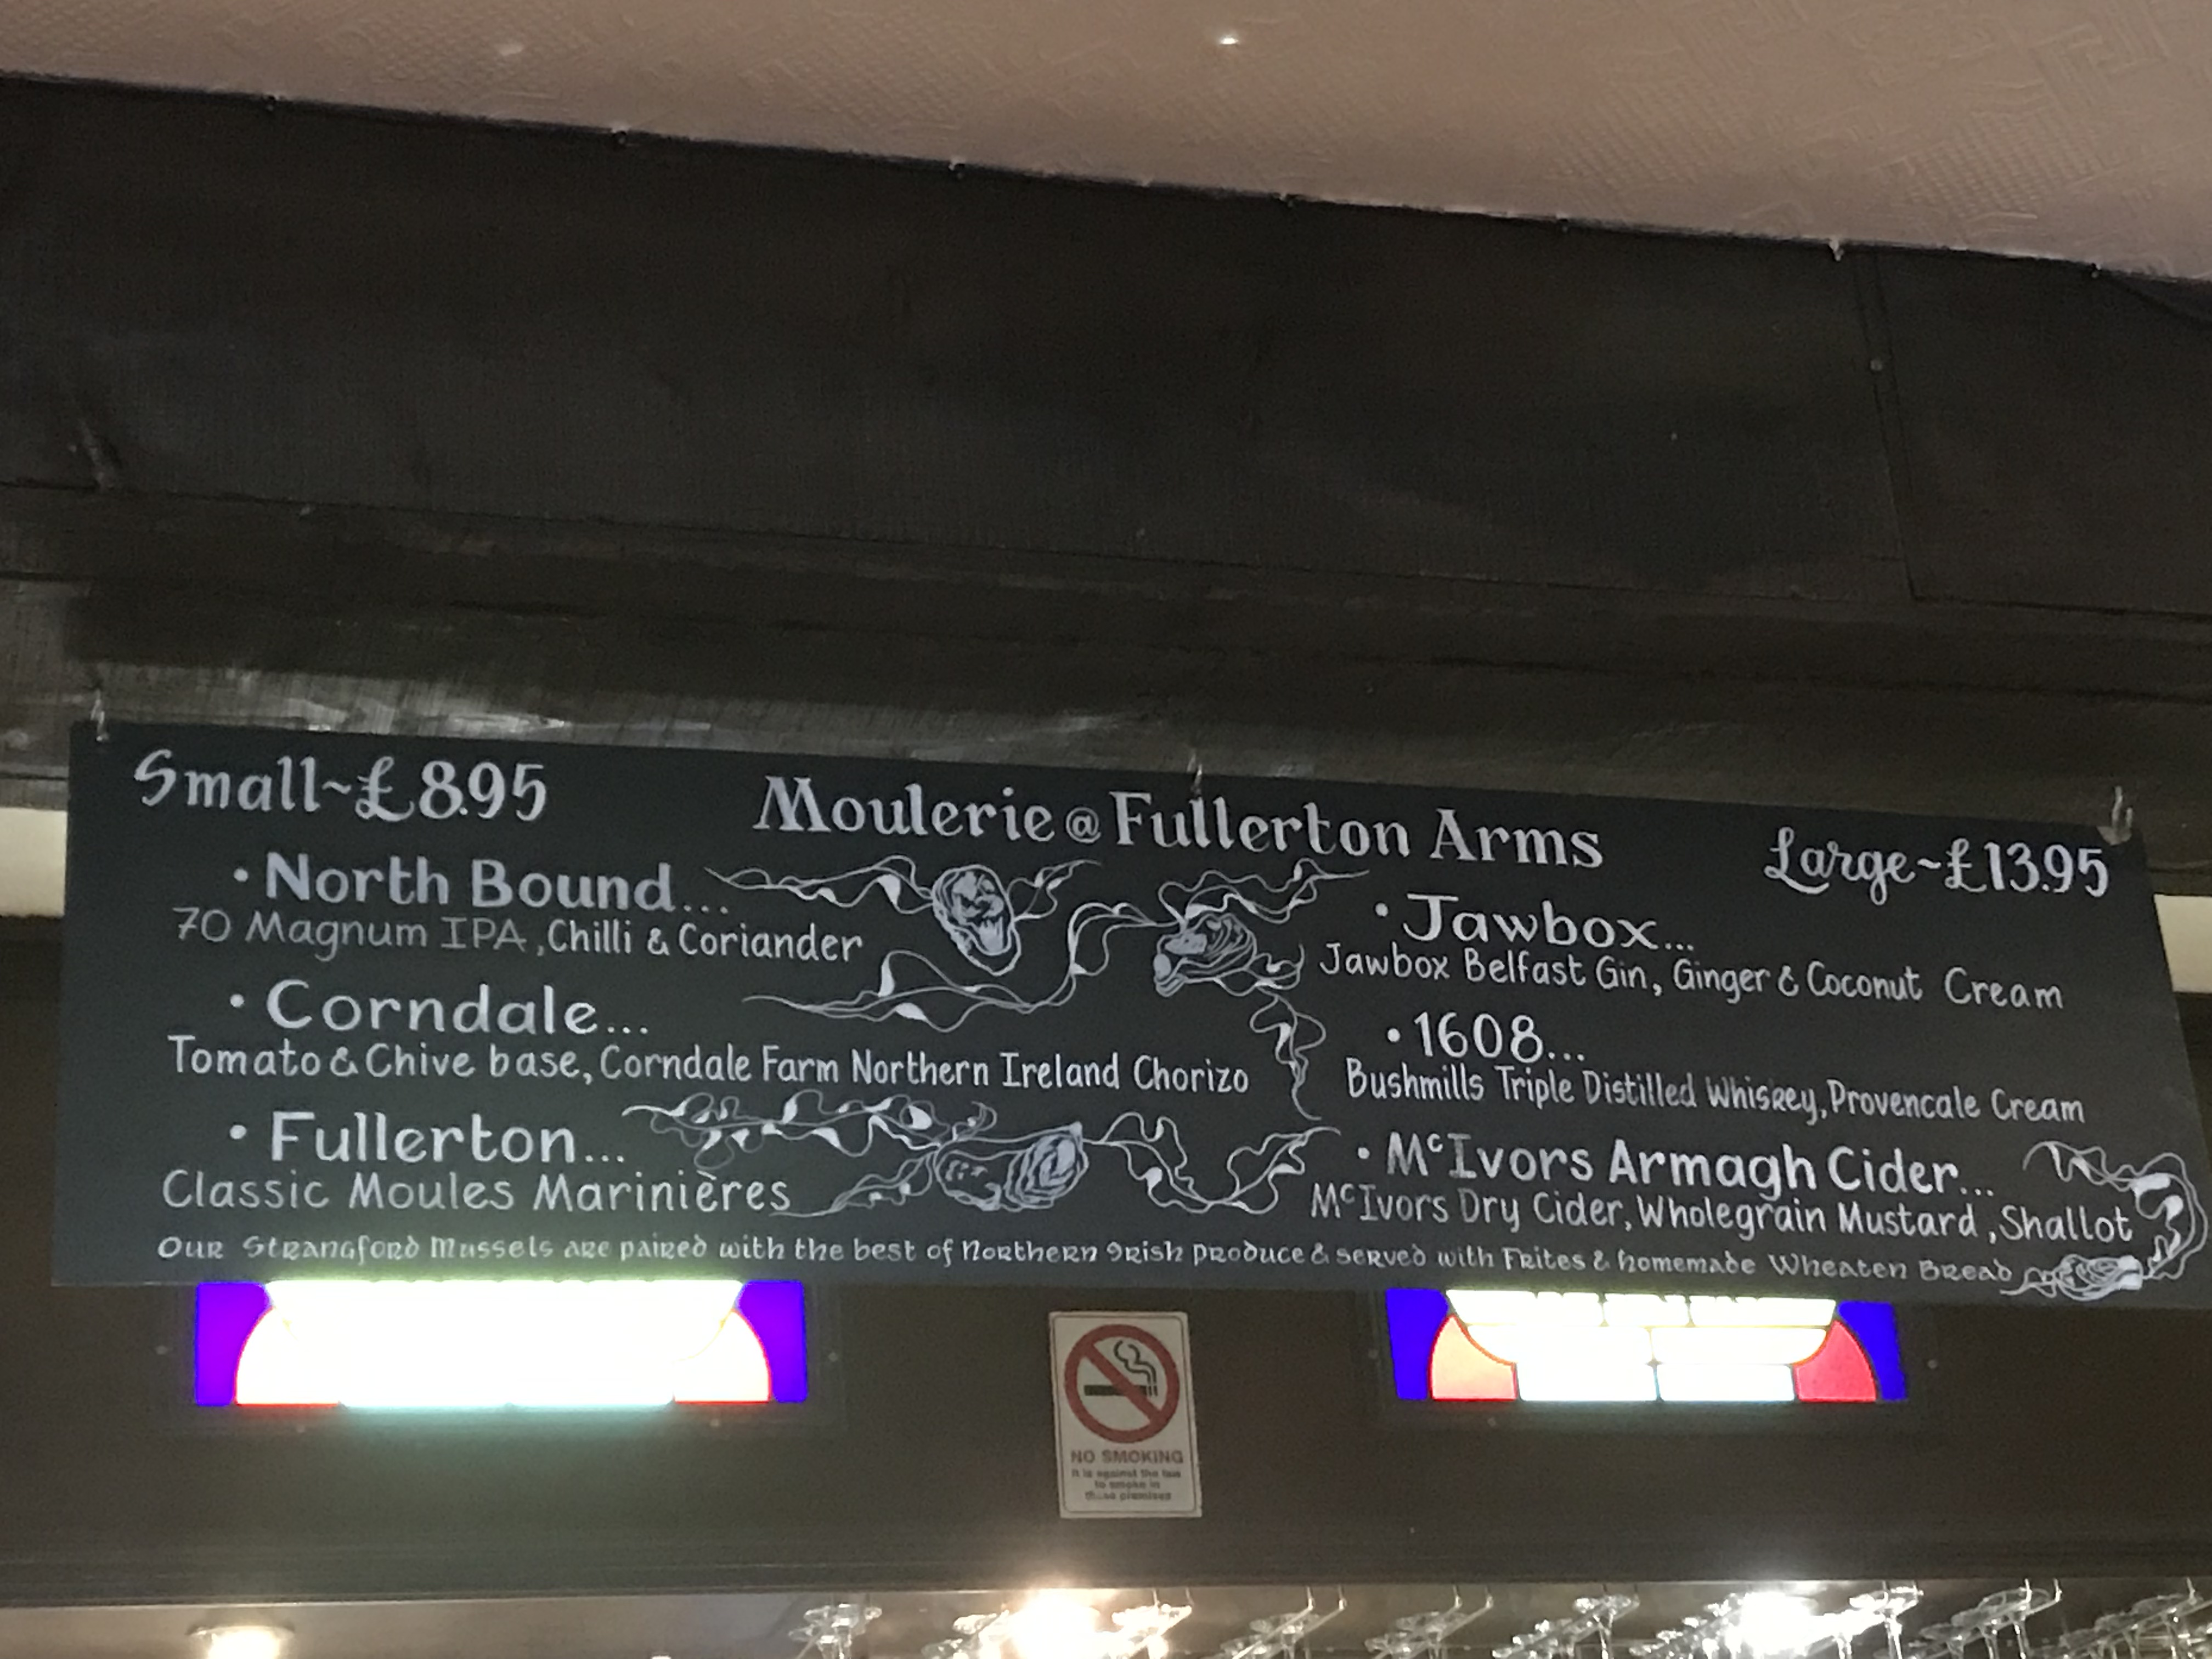 Small~£8.95
Moulerie@Fullerton Arms
Large~£13.95
· North Bound...
70 Magnum IPA, Chilli & Coriander
· Corndale...
Tomato & Chive base, Corndale Farm Northern Ireland Chorizo
· Fullerton...
Classic Moules Marinières
· Jawbox...
Jawbox Belfast Gin, Ginger & Coconut Cream
· 1608...
Bushmills Triple Distilled Whiskey, Provencale Cream
· McIvors Armagh Cider...
McIvors Dry Cider, Wholegrain Mustard, Shallot
Our Strangford Mussels are paired with the best of Northern Irish produce & served with Frites & homemade Wheaten Bread
NO SMOKING
It is against the law
to smoke in
these premises